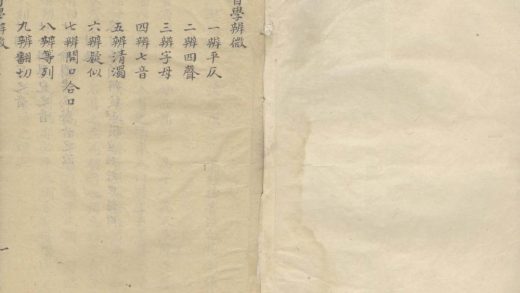 音學辨微
一辨平仄
二辨四聲
三辨字母
四辨七音
五辨清濁
六辨疑似
七辨開口合口
八辨等列
九辨翻切
學辨微
一